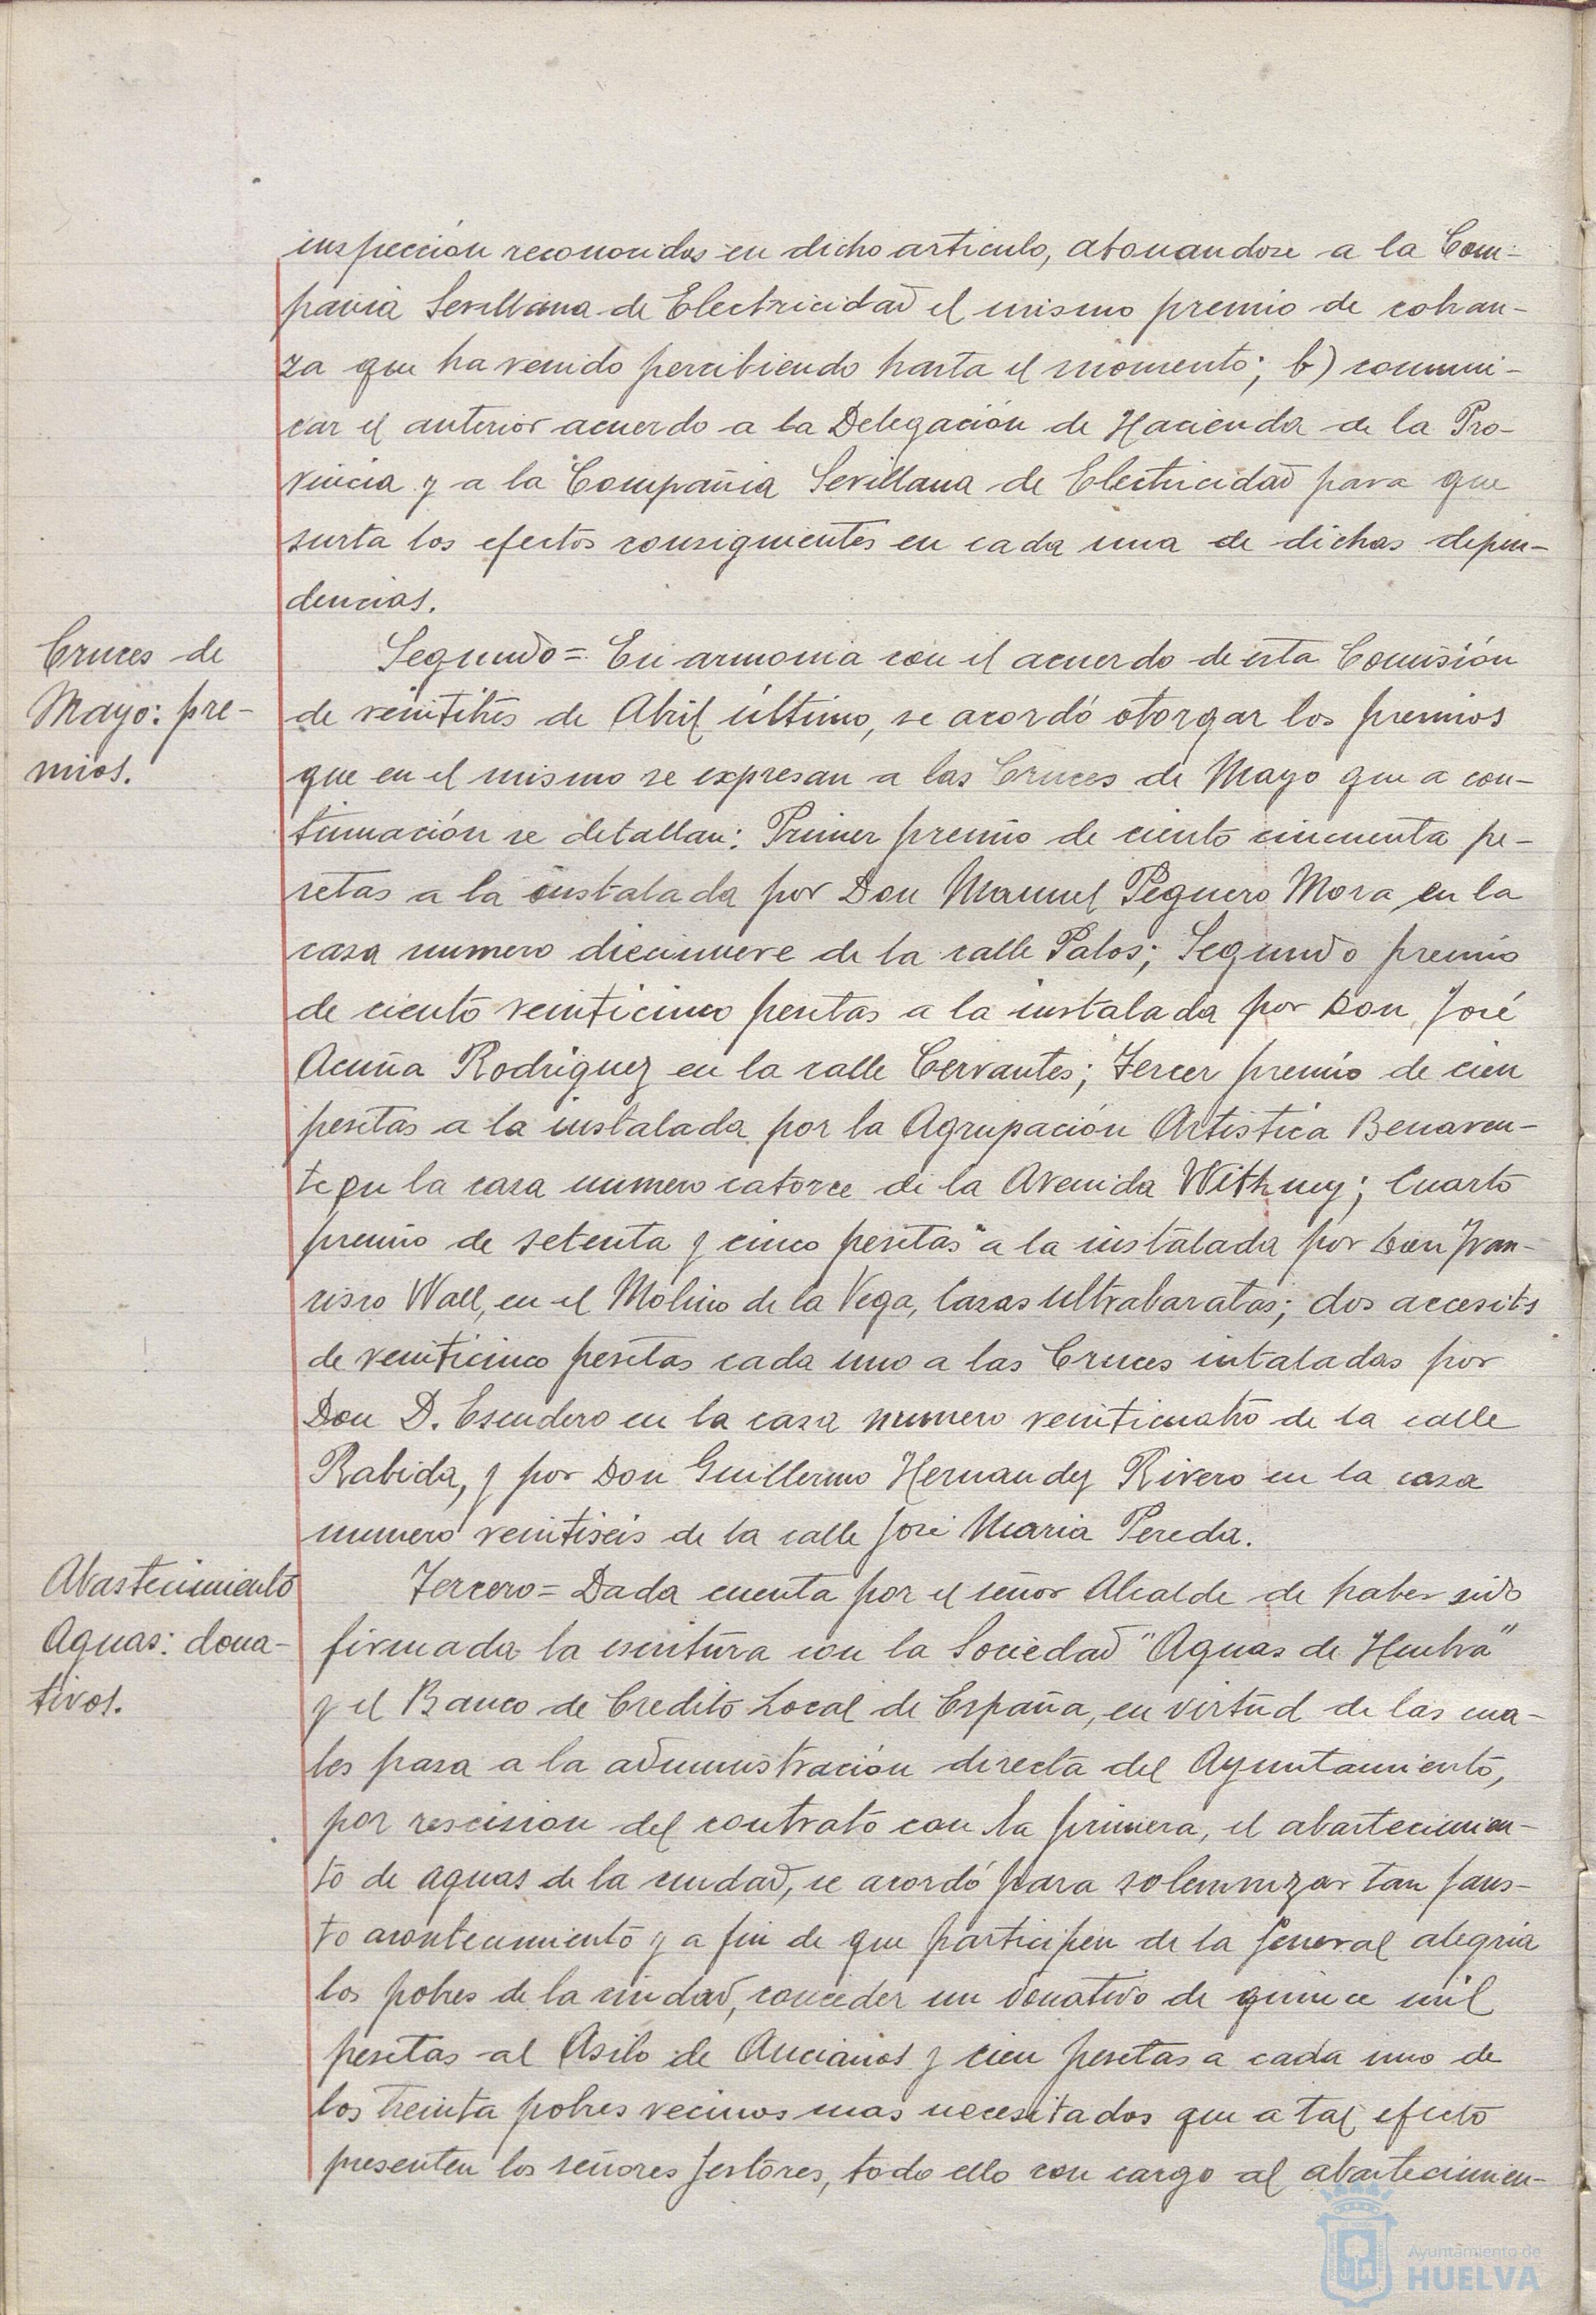 inspección reconocidos en dicho articulo, abonandose a la Com-
pañia Sevillana de Electricidad el mismo premio de cobran-
za que ha venido percibiendo hasta el momento; b) comuni-
car el anterior acuerdo a la Delegación de Hacienda de la Pro-
vincia y a la Compañia Sevillana de Electricidad para que
surta los efectos consiguientes en cada una de dichas depen-
dencias.
Cruces de
Mayo: pre-
mios.
Segundo = En armonia con el acuerdo de esta Comisión
de veintitrés de Abril último, se acordó otorgar los premios
que en el mismo se expresan a las Cruces de Mayo que a con-
tinuación se detallan: Primer premio de ciento cincuenta pe-
setas a la instalada por Don Manuel Peguero Mora en la
casa numero diecinueve de la calle Palos; Segundo premio
de ciento veinticinco pesetas a la instalada por Don José
Acuña Rodriguez en la calle Cervantes; Tercer premio de cien
pesetas a la instalada por la Agrupación Artistica Benaven-
te en la casa numero catorce de la Avenida Withney; Cuarto
premio de setenta y cinco pesetas a la instalada por Don Fran-
cisco Wall, en el Molino de la Vega, Casas Ultrabaratas; dos accesits
de veinticinco pesetas cada uno a las Cruces intaladas por
Don D. Escudero en la casa numero veinticuatro de la calle
Rabida, y por Don Guillermo Hernandez Rivero en la casa
numero veintiseis de la calle José Maria Pereda.
Abastecimiento
Aguas: dona-
tivos.
Tercero = Dada cuenta por el señor Alcalde de haber sido
firmada la escritura con la Sociedad "Aguas de Huelva"
y el Banco de Credito Local de España, en virtud de las cua-
les pasa a la administración directa del Ayuntamiento,
por rescision del contrato con la primera, el abastecimien-
to de aguas de la ciudad, se acordó para solemnizar tan faus-
to acontecimiento y a fin de que participen de la general alegria
los pobres de la ciudad, conceder un donativo de quince mil
pesetas al Asilo de Ancianos y cien pesetas a cada uno de
los treinta pobres vecinos mas necesitados que a tal efecto
presenten los señores gestores, todo ello con cargo al abastecimien-
Ayuntamiento de
HUELVA